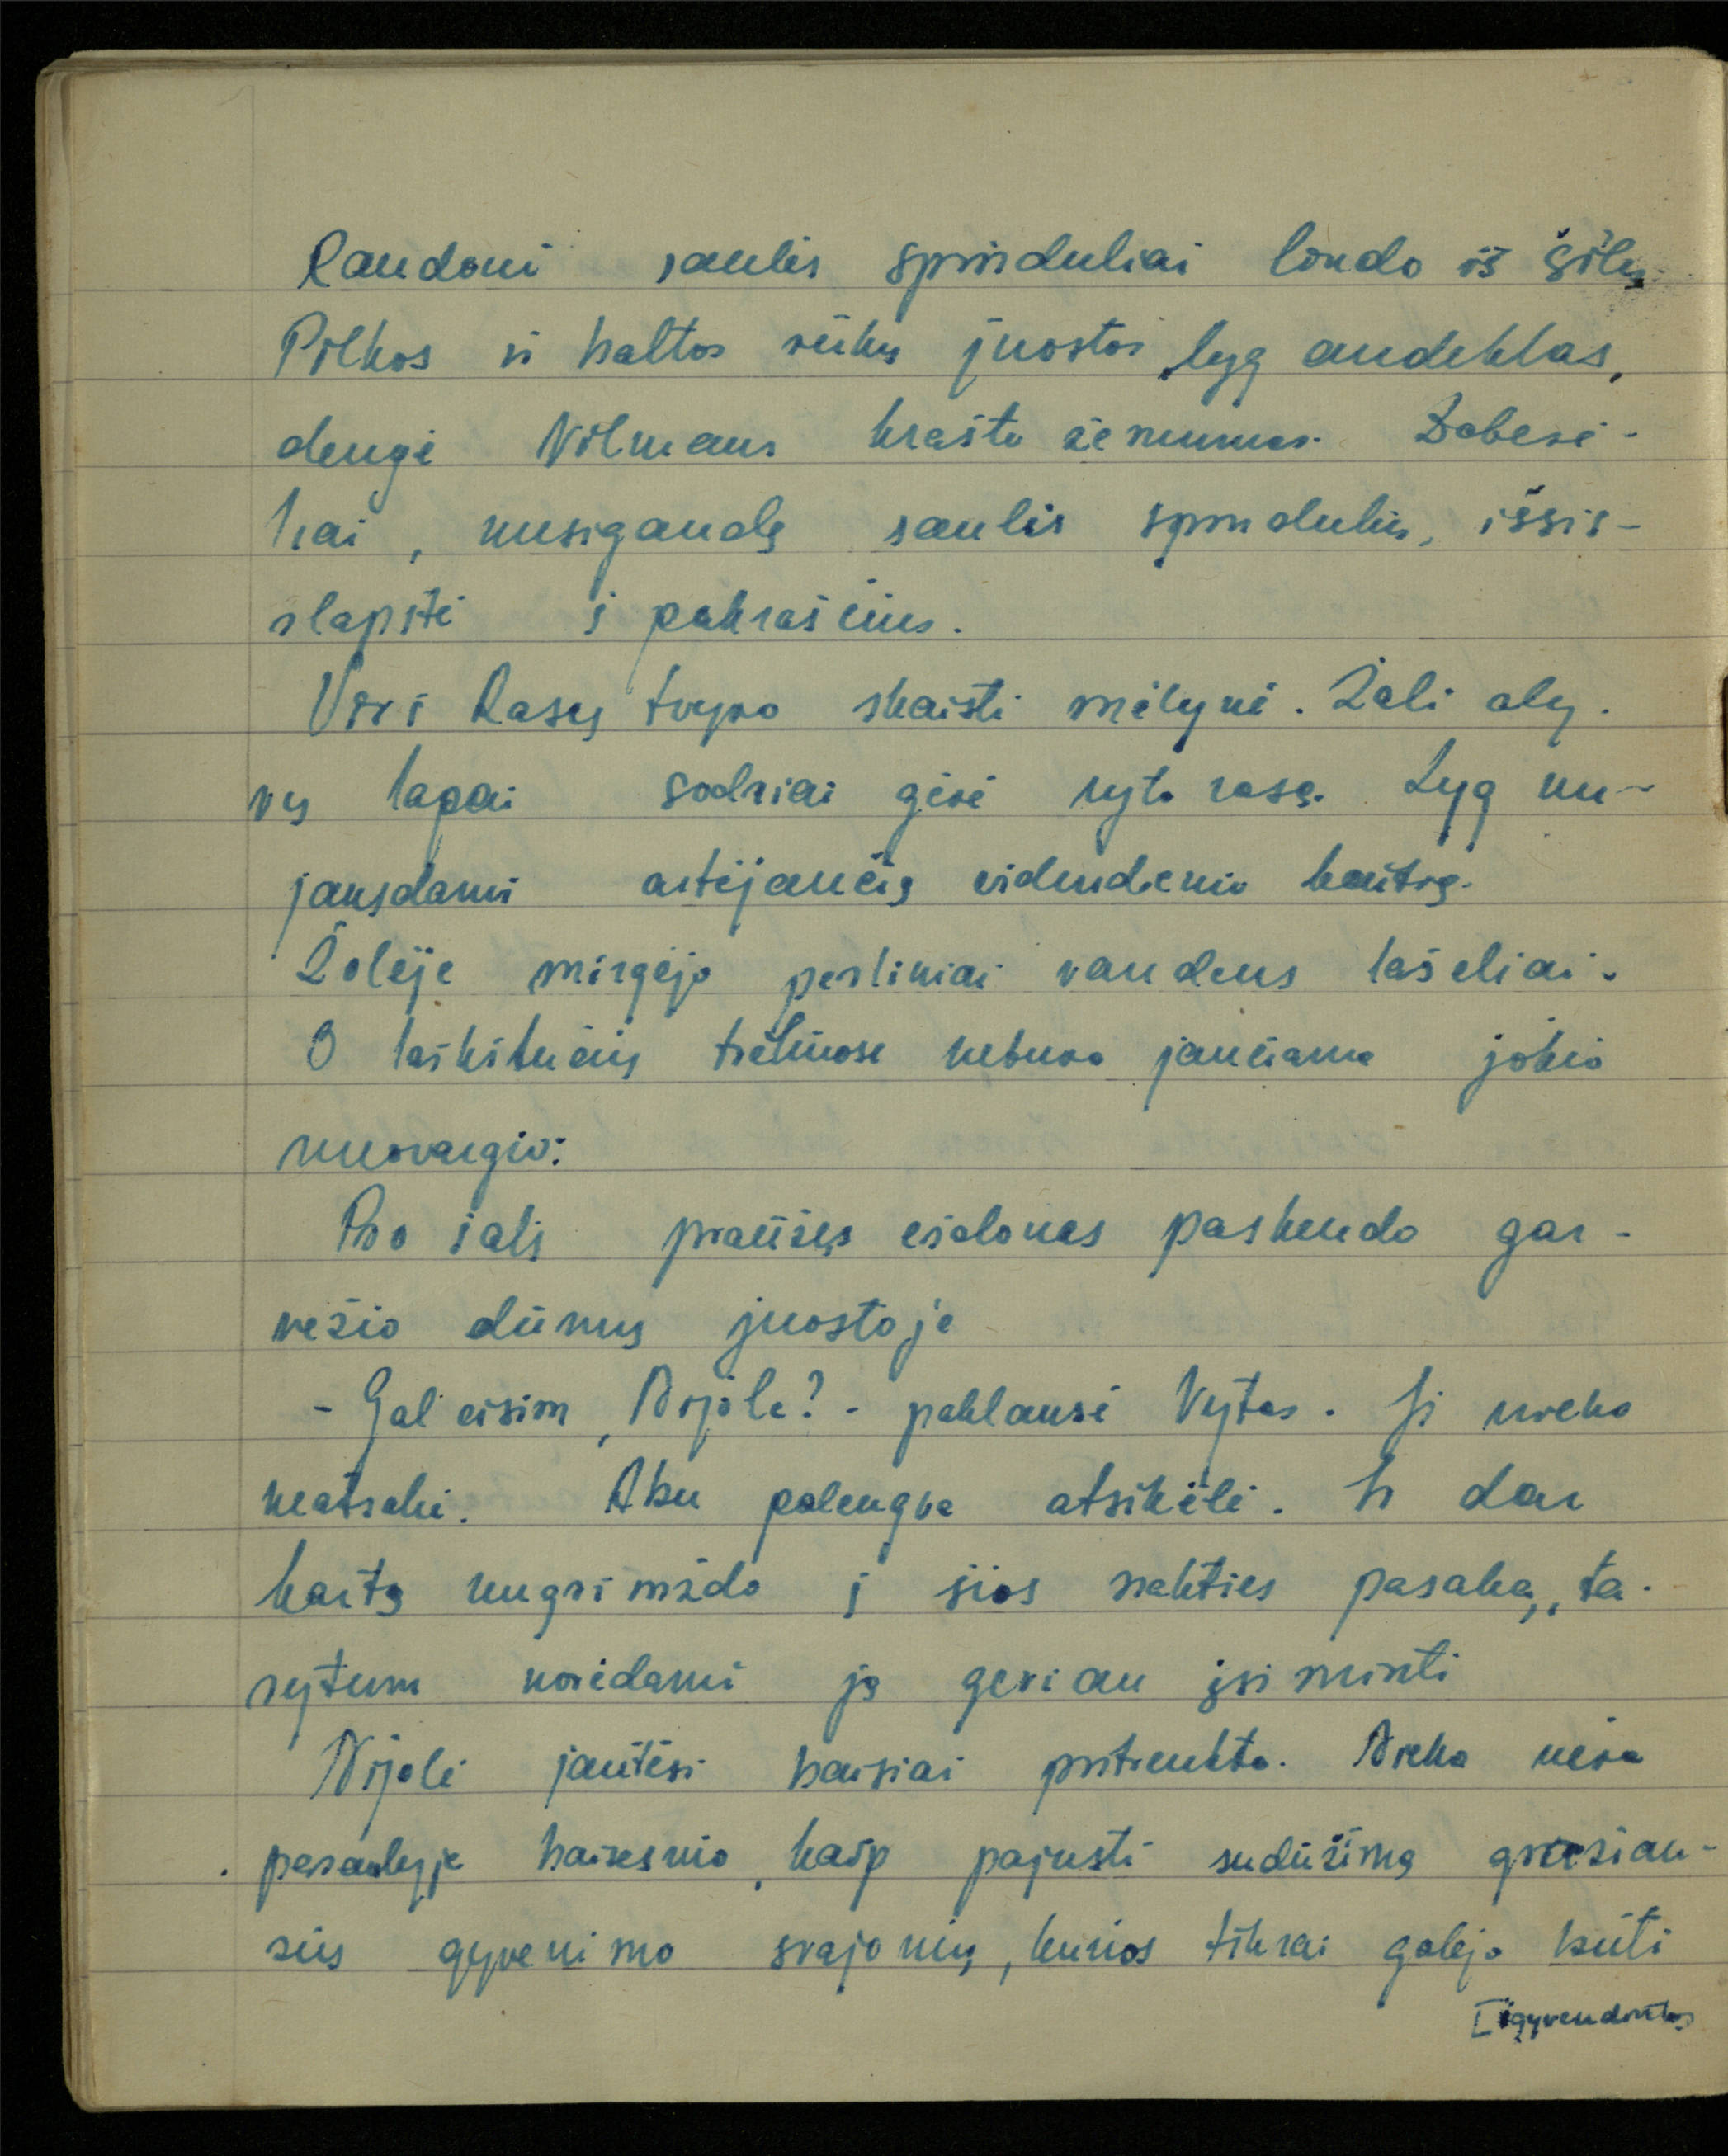 Raudoni saulės spinduliai lindo iš šilų.
Pilkos ir baltos rūkų juostos, lyg audeklas,
dengė Vilniaus krašto žemumas. Debesė-
liai, nusigandę saulės spindulių, išsis-
slapstė į pakraščius.
Virš Rasų tvyro skaisti mėlynė. Žali aly-
vų lapai sodriai gėrė ryto rasą. Lyg nu-
jausdami artėjančią vidudienio kaitrą.
Žolėje mirgėjo perliniai vandens lašeliai.
O lakštučių treliuose nebuvo jaučiama jokio
nuovargio.
Pro šalį praūžęs ešalonas paskendo gar-
vežio dūmų juostoje
- Gal eisim, Nijole? - paklausė Vytas. Ji nieko
neatsakė. Abu palengva atsikėlė. Ir dar
kartą nugrimzdo į šios nakties pasaką, ta-
rytum norėdami ją geriau įsiminti
Nijolė jautėsi baisiai pritrenkta. Nieko nėra
pasaulyje baisesnio, kaip pajusti sudužimą gražiau-
sių gyvenimo svajonių, kurios tikrai galėjo būti
įgyvendintos